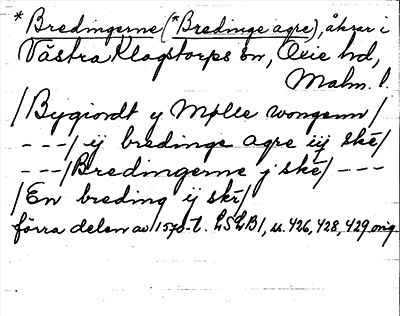 *Bredingerne (*Bredinge agre), åkrar i
Västra Klagstorps sn, Oxie hd,
Malm. l.
/Bygiordt y Mølle wongenn/
---/ij bredinge agre iij skē/
---/Bredingerne j skē/ ---
/En breding ij skē/
förra delen av 1570-t. LSLB1, s. 426, 428, 429 orig.